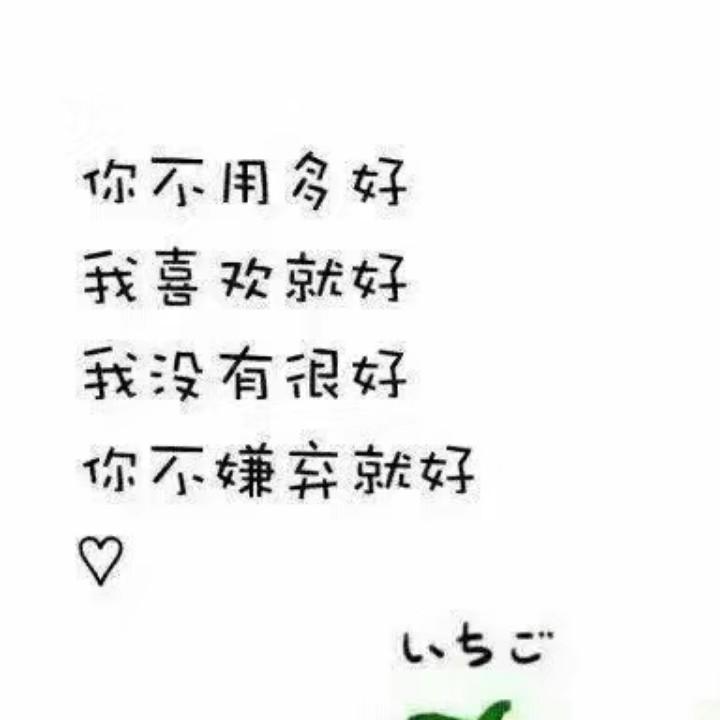 你不用多好
我喜欢就好
我没有很好
你不嫌弃就好
♡
いちご